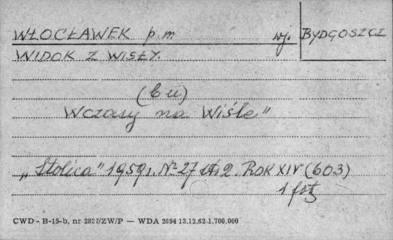 WŁOCŁAWEK p.m. wj. BYDGOSZCZ
WIDOK Z WISŁY.
Wczasy na Wiśle"
„Stolica" 1959 r. № 27 str 2. ROK XIV (603)
1 fot
CWD - B-15-b, nr 2827/ZW/P — WDA 2694 13.12.62 1.700.000